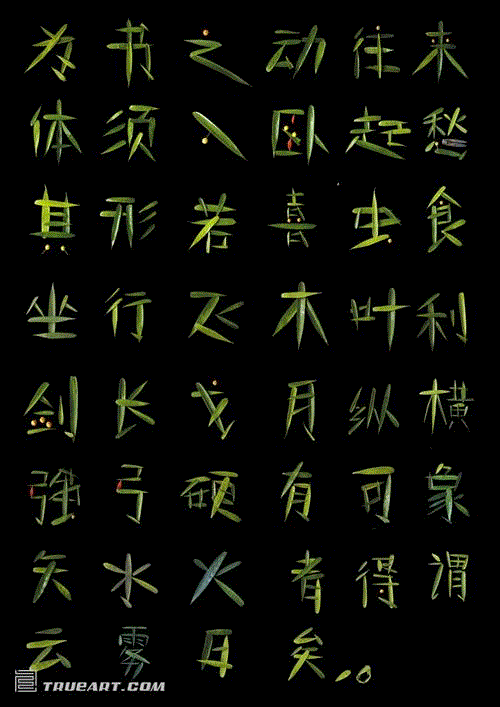 为书之动往来
体须入卧起愁
其形若喜虫食
坐行飞木叶利
剑长戈月纵横
强弓硬有可象
矢水火者得谓
云雾日矣。
TRUEART.COM